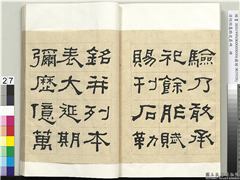 驗乃敢承
祀餘胙賦
賜刊石勒
銘并列本
表大延期
彌歷億萬
27